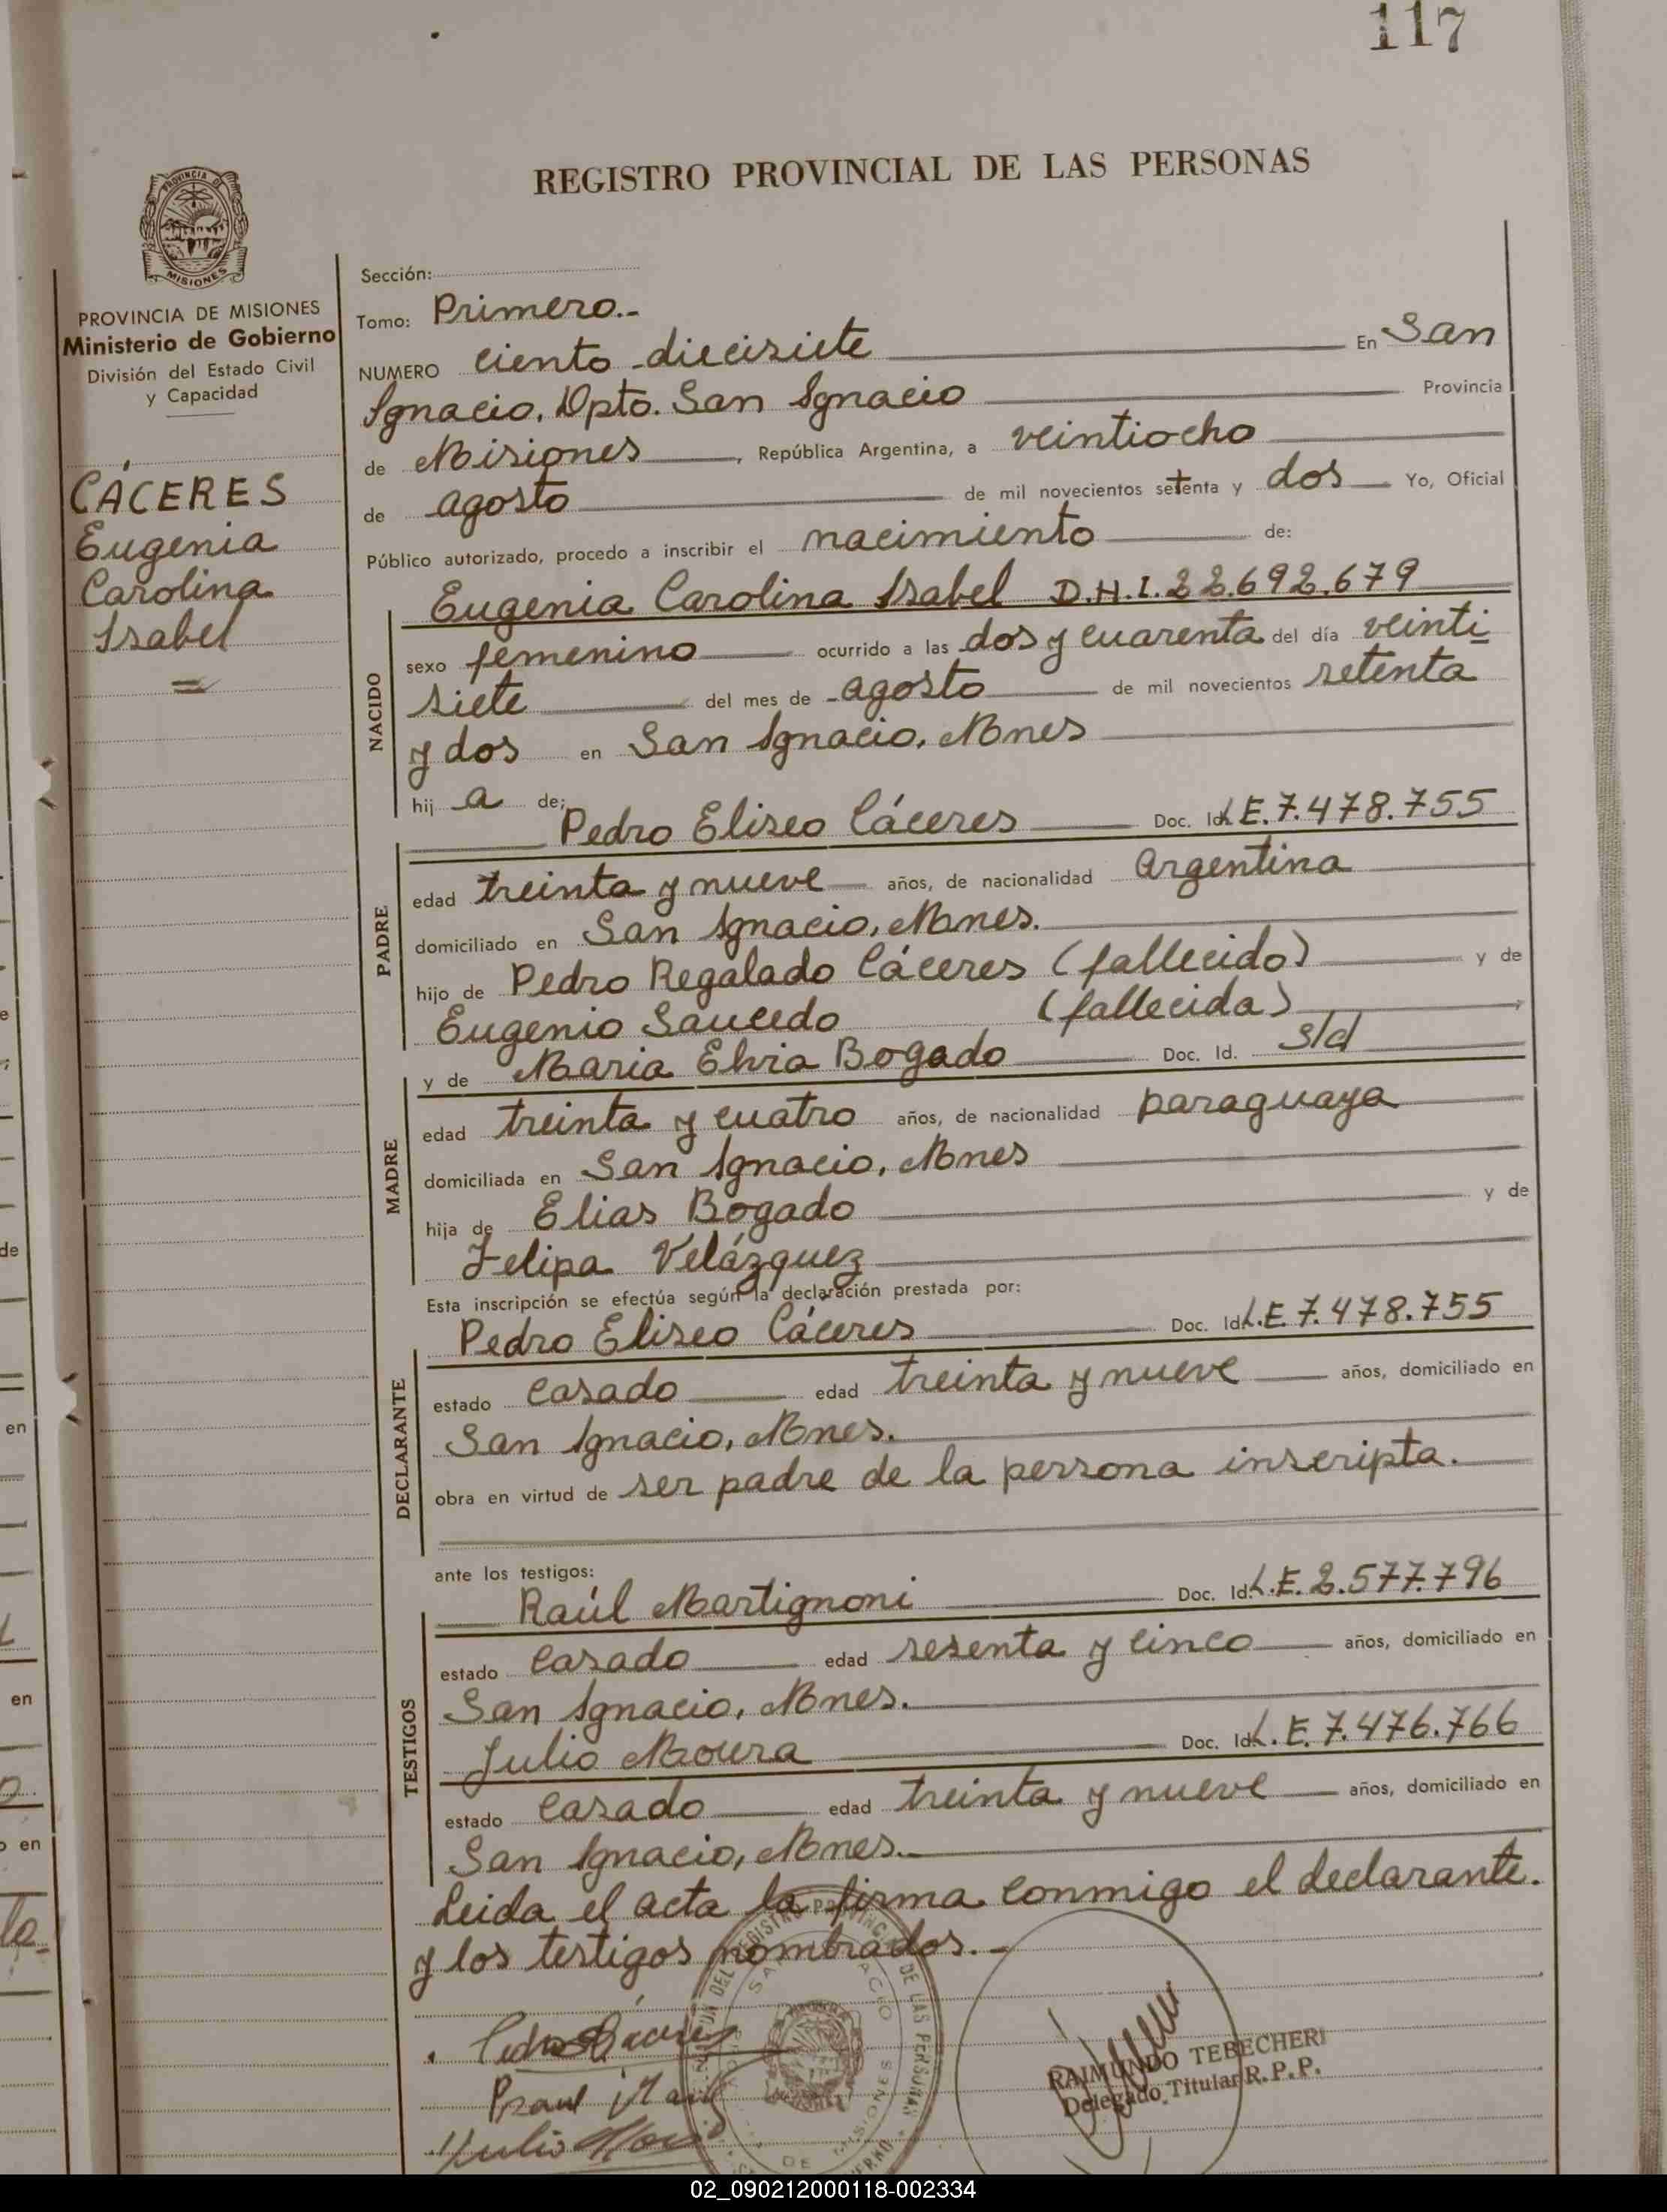 117
REGISTRO PROVINCIAL DE LAS PERSONAS
PROVINCIA DE
MISIONES
PROVINCIA DE MISIONES
Ministerio de Gobierno
División del Estado Civil
y Capacidad
CÁCERES
Eugenia
Carolina
Isabel
Sección:
Tomo: Primero.-
NUMERO ciento diecisiete En San
Ignacio, Dpto. San Ignacio Provincia
de Misiones, República Argentina, a veintiocho
de agosto de mil novecientos setenta y dos Yo, Oficial
Público autorizado, procedo a inscribir el nacimiento de:
NACIDO
Eugenia Carolina Isabel D.N.I. 22.692.679
sexo femenino ocurrido a las dos y cuarenta del día veinti
siete del mes de agosto de mil novecientos setenta
y dos en San Ignacio, Mnes
hij a de:
PADRE
Pedro Eliseo Cáceres Doc. Id. L.E. 7.478.755
edad treinta y nueve años, de nacionalidad Argentina
domiciliado en San Ignacio, Mnes.
hijo de Pedro Regalado Cáceres (fallecido) y de
Eugenio Saucedo (fallecida)
MADRE
y de Maria Elvia Bogado Doc. Id. s/d
edad treinta y cuatro años, de nacionalidad paraguaya
domiciliada en San Ignacio, Mnes
hija de Elias Bogado y de
Felipa Velázquez
Esta inscripción se efectúa según la declaración prestada por:
DECLARANTE
Pedro Eliseo Cáceres Doc. Id. L.E. 7.478.755
estado casado edad treinta y nueve años, domiciliado en
San Ignacio, Mnes.
obra en virtud de ser padre de la persona inscripta.
ante los testigos:
TESTIGOS
Raúl Martignoni Doc. Id. L.E. 2.577.796
estado casado edad sesenta y cinco años, domiciliado en
San Ignacio, Mnes.
Julio Moura Doc. Id. L.E. 7.476.766
estado casado edad treinta y nueve años, domiciliado en
San Ignacio, Mnes.-
Leida el acta la firma conmigo el declarante.
y los testigos nombrados.-
RAIMUNDO TEBECHERI
Delegado Titular R.P.P.
02_090212000118-002334